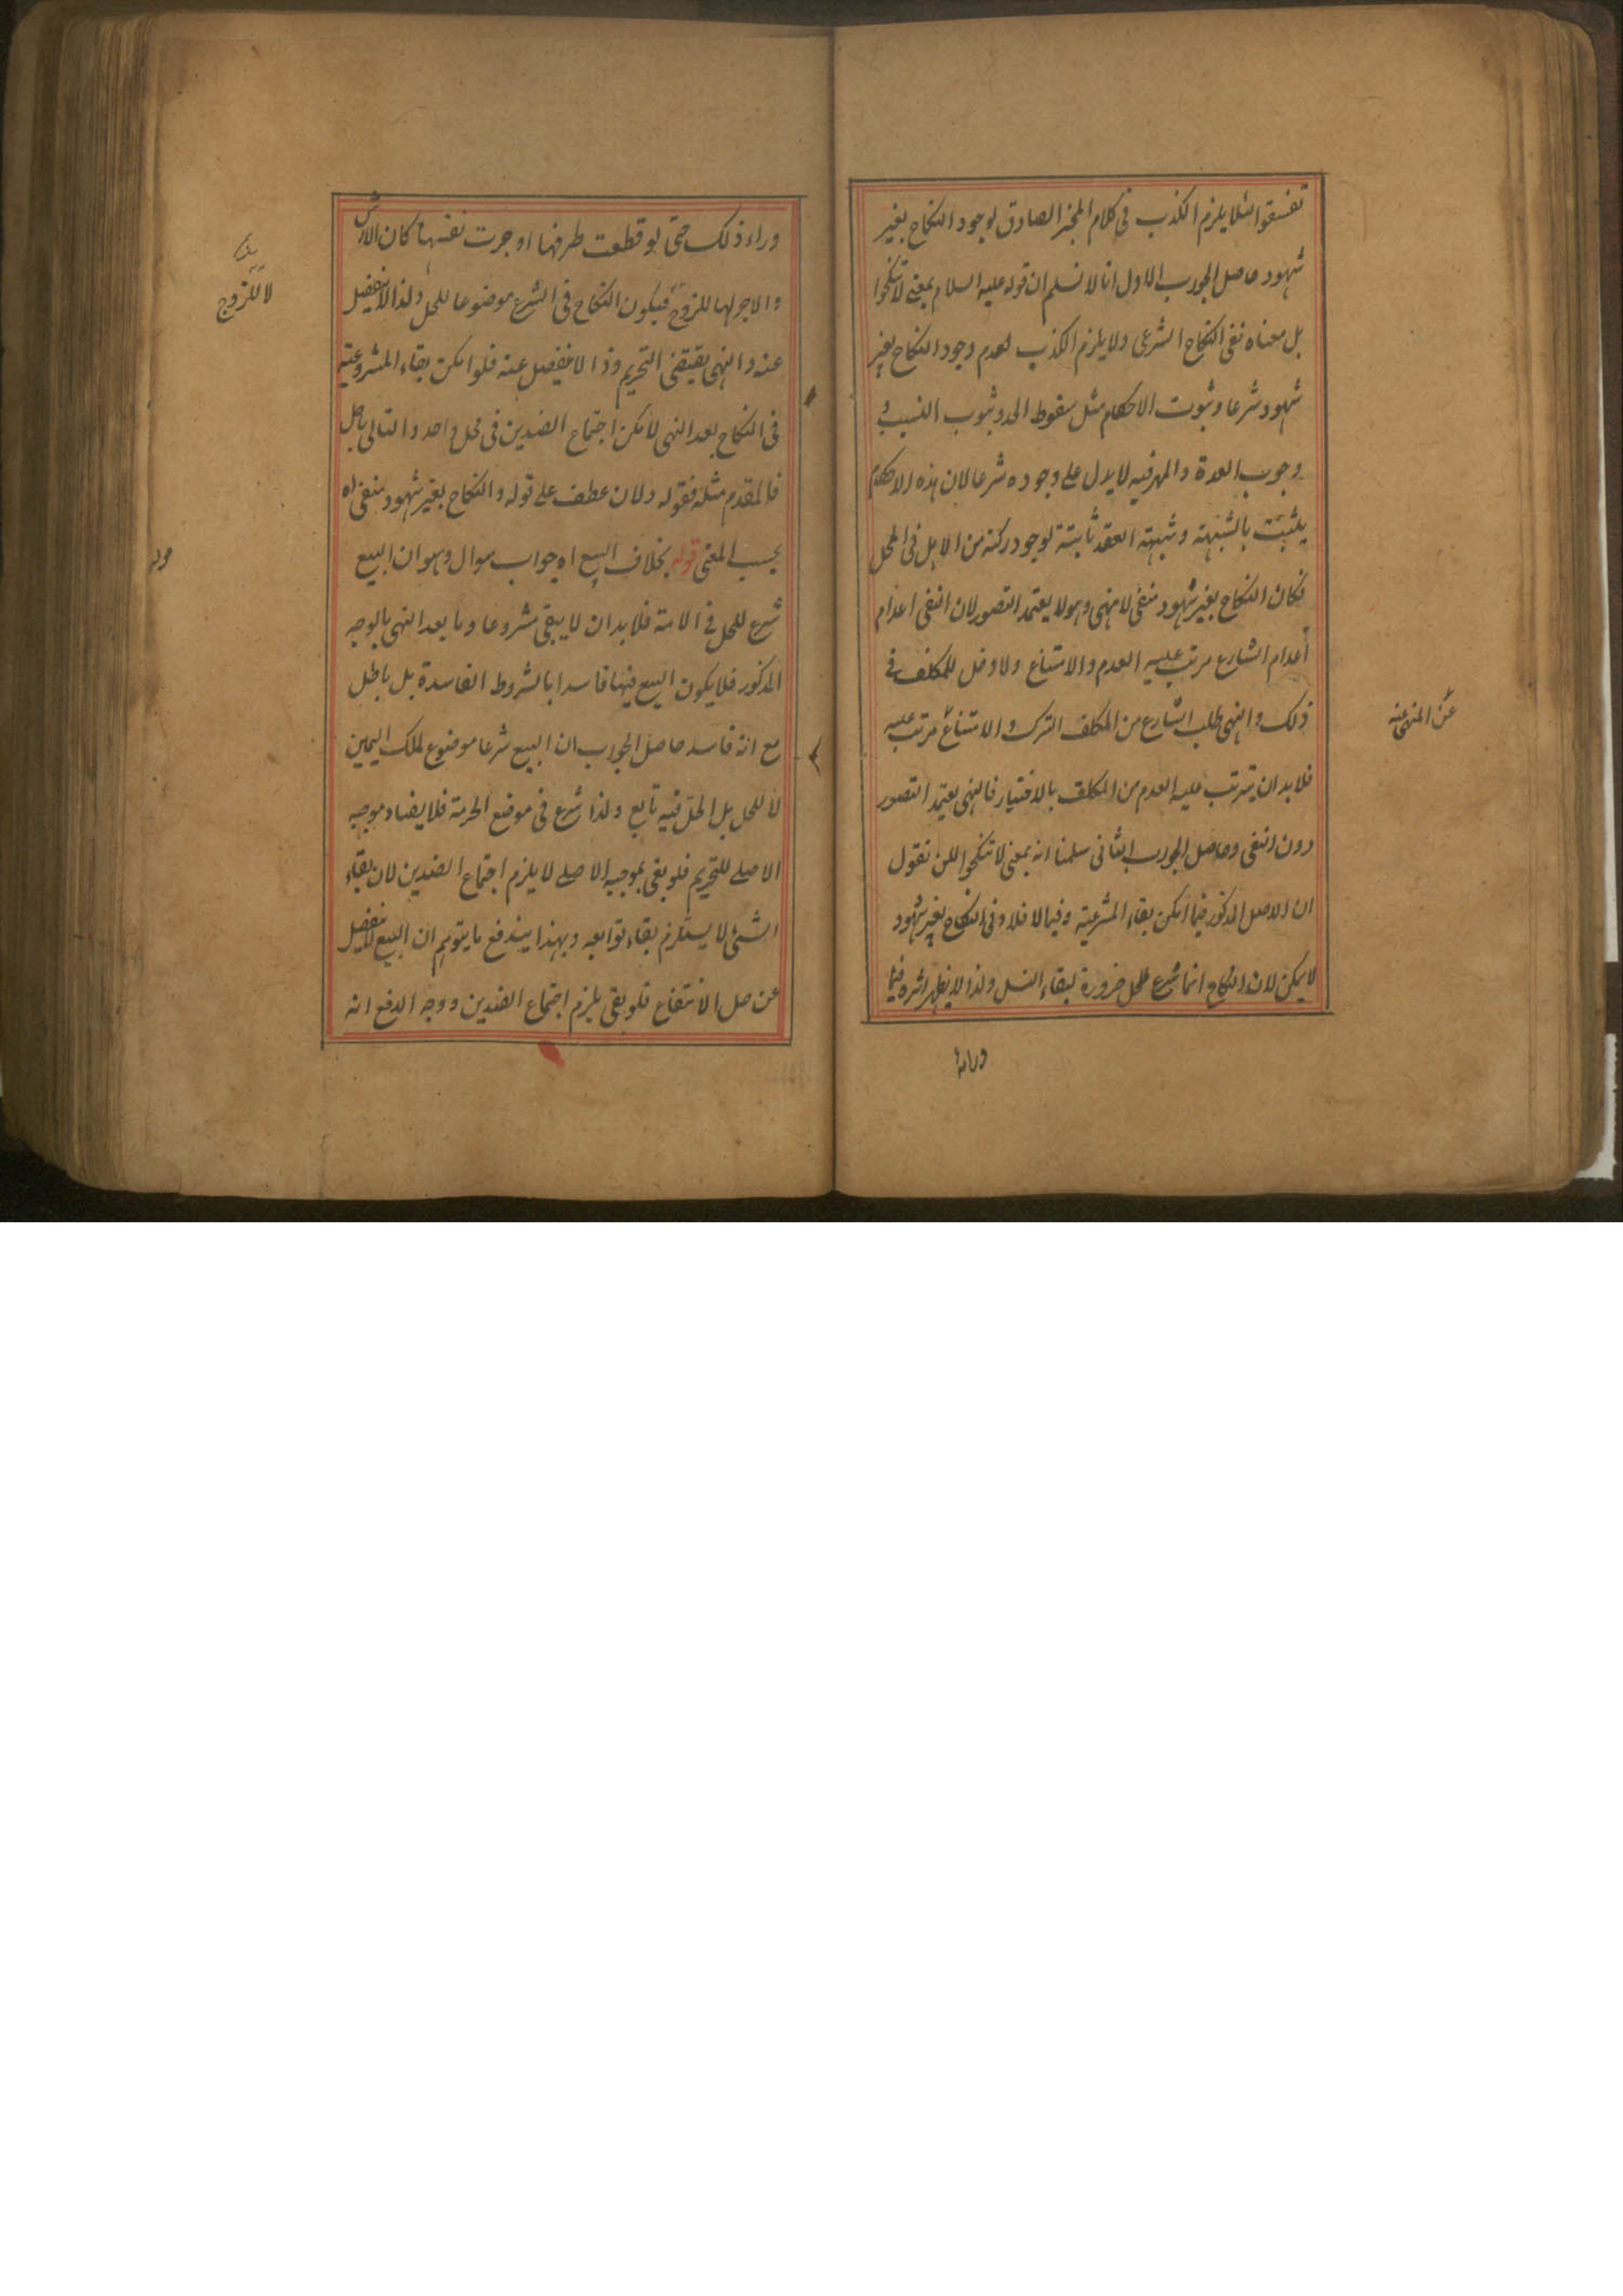 تفسقوا لئلا يلزم الكذب فى كلام المخبر الصادق لوجود النكاح بغير
شهود حاصل الجواب الاول انا لا نسلم ان قوله عليه السلام بمعنى لا تنكحوا
بل معناه نفى النكاح الشرعى ولا يلزم الكذب لعدم وجود النكاح بغير
شهود شرعا وثبوت الاحكام مثل سقوط الحد وثبوت النسب و
وجوب العدة والمهر فيه لا يدل على وجوده شرعا لان هذه الاحكام
يثبت بالشبهة وشبهة العقد ثابتة لوجود ركنه من الاهل فى المحل
فكان النكاح بغير شهود منفى لا منهى وهو لا يعتمد التصور لان النفى اعدام
اعدام الشارع مرتب عليه العدم والامتناع ولا دخل للمكلف فى
ذلك والنهى طلب الشارع من المكلف الترك والامتناع مرتب عليه
عن المنهى عنه
فلا بد ان يترتب عليه العدم من المكلف بالاختيار فالنهى يعتمد التصور
دون النفى وحاصل الجواب الثانى سلمنا انه بمعنى لا تنكحوا لكن نقول
ان الاصل المذكور فيما امكن بقاء المشرعية وفيما لا فلا وفى النكاح بغير شهود
لا يمكن لان النكاح انما شرع للحل ضرورة لبقاء النسل ولذا لا يظهر اثره فيما
وراء
وراء ذلك حتى لو قطعت طرفها او جرت نفسها كان الارش
والاجر لها للزوج فيكون النكاح فى الشرع موضوعا للحل ولذا لا ينفصل
لا للزوج
عنه والنهى يقتضى التحريم وذا لا ينفصل عنه فلو امكن بقاء المشروعية
فى النكاح بعد النهى لامكن اجتماع الضدين فى محل واحد والتالى باطل
فالمقدم مثله فقوله ولان عطف على قوله والنكاح بغير شهود منفى اه
بحسب المعنى قوله بخلاف البيع اه جواب سوال وهو ان البيع
شرع للحل فى الامة فلا بد ان لا يبقى مشروعا وما بعد النهى بالوجه
المذكور فلا يكون البيع فيها فاسدا بالشروط الفاسدة بل باطل
مع انه فاسد حاصل الجواب ان البيع شرعا موضوع لملك اليمين
لا للحل بل الحل فيه تابع ولذا شرع فى موضع الحرمة فلا يضاد موجبه
الاصلے للتحريم فلو بقى بموجبه الاصلے لا يلزم اجتماع الضدين لان بقاء
الشئ لا يستلزم بقاء توابعه وبهذا يندفع ما يتوهم ان البيع لا ينفصل
عن حل الانتفاع فلو بقى يلزم اجتماع الضدين ووجه الدفع انه